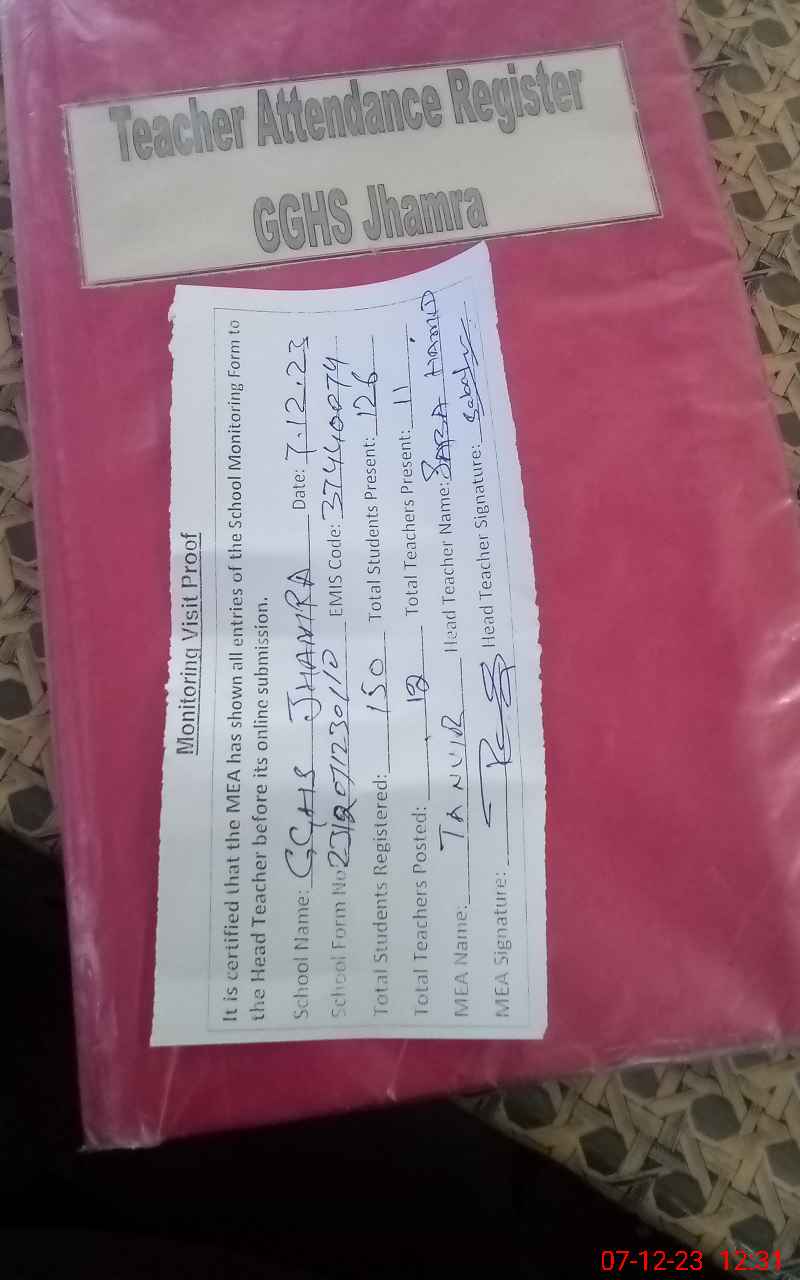 Teacher Attendance Register
GGHS Jhamra
Monitoring Visit Proof
It is certified that the MEA has shown all entries of the School Monitoring Form to
the Head Teacher before its online submission.
School Name: GGHS JHAMRA Date: 7.12.23
School Form No EMIS Code: 37440074
Total Students Registered: 150 Total Students Present: 126
Total Teachers Posted: 12 Total Teachers Present: 11
MEA Name: TANVIR Head Teacher Name: SABA HAMID
MEA Signature: Head Teacher Signature:
07-12-23 12:31